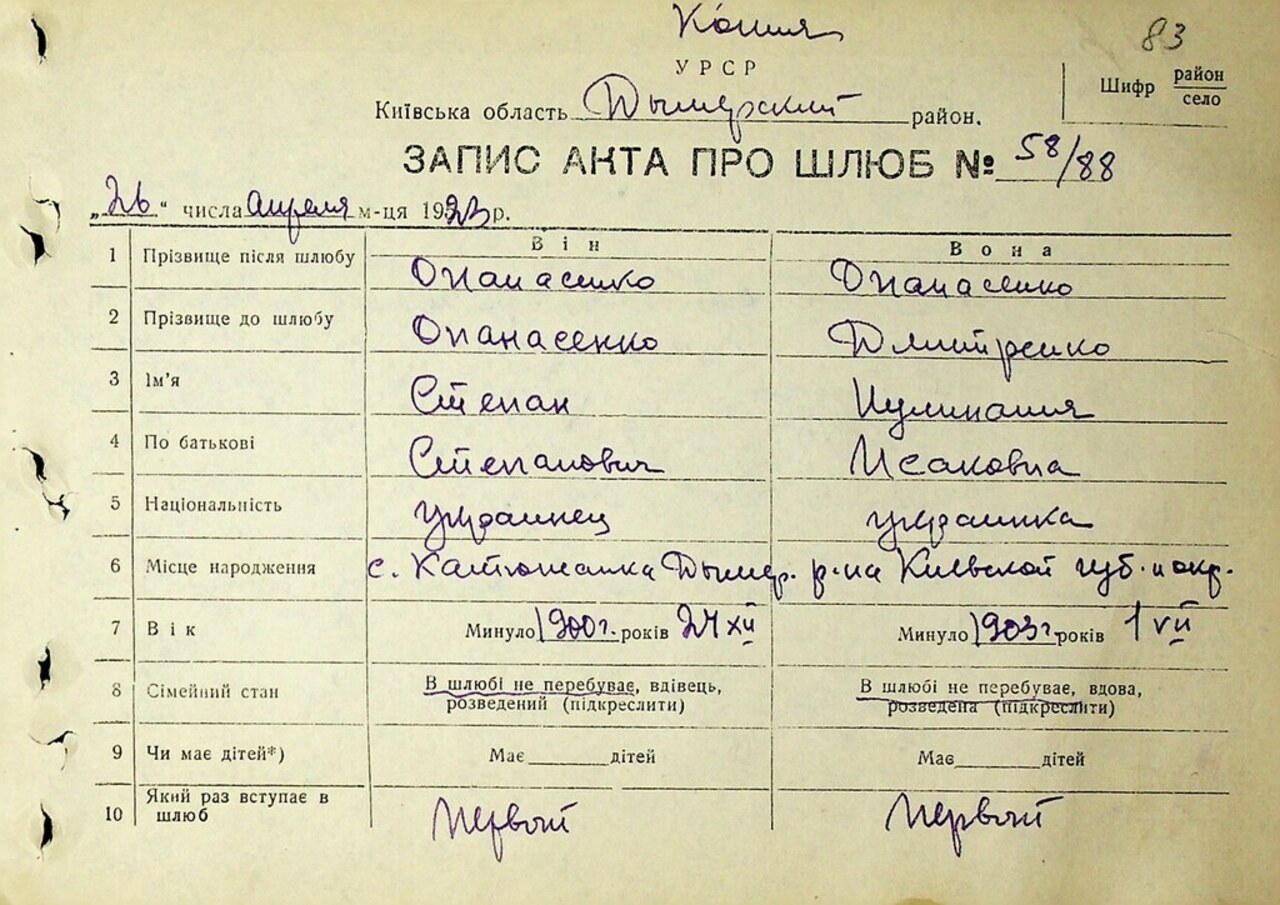 Копия
83
УРСР
Шифр район
село
Київська область Дымерский район.
ЗАПИС АКТА ПРО ШЛЮБ № 58/88
„26“ числа апреля м-ця 1923 р.
Він Вона
1 Прізвище після шлюбу Опанасенко Опанасенко
2 Прізвище до шлюбу Опанасенко Дмитренко
3 Ім'я Степан
4 По батькові Степанович Исаковна
5 Національність украинец украинка
6 Місце народження с. Катюжанка Дымер. р-на Киевской губ. и окр.
7 Вік Минуло 1900 г. років 24 XII Минуло 1903 г. років 1 VII
8 Сімейний стан В шлюбі не перебуває, вдівець, В шлюбі не перебуває, вдова,
розведений (підкреслити) розведена (підкреслити)
9 Чи має дітей*) Має дітей Має дітей
10 Який раз вступає в шлюб первый первый